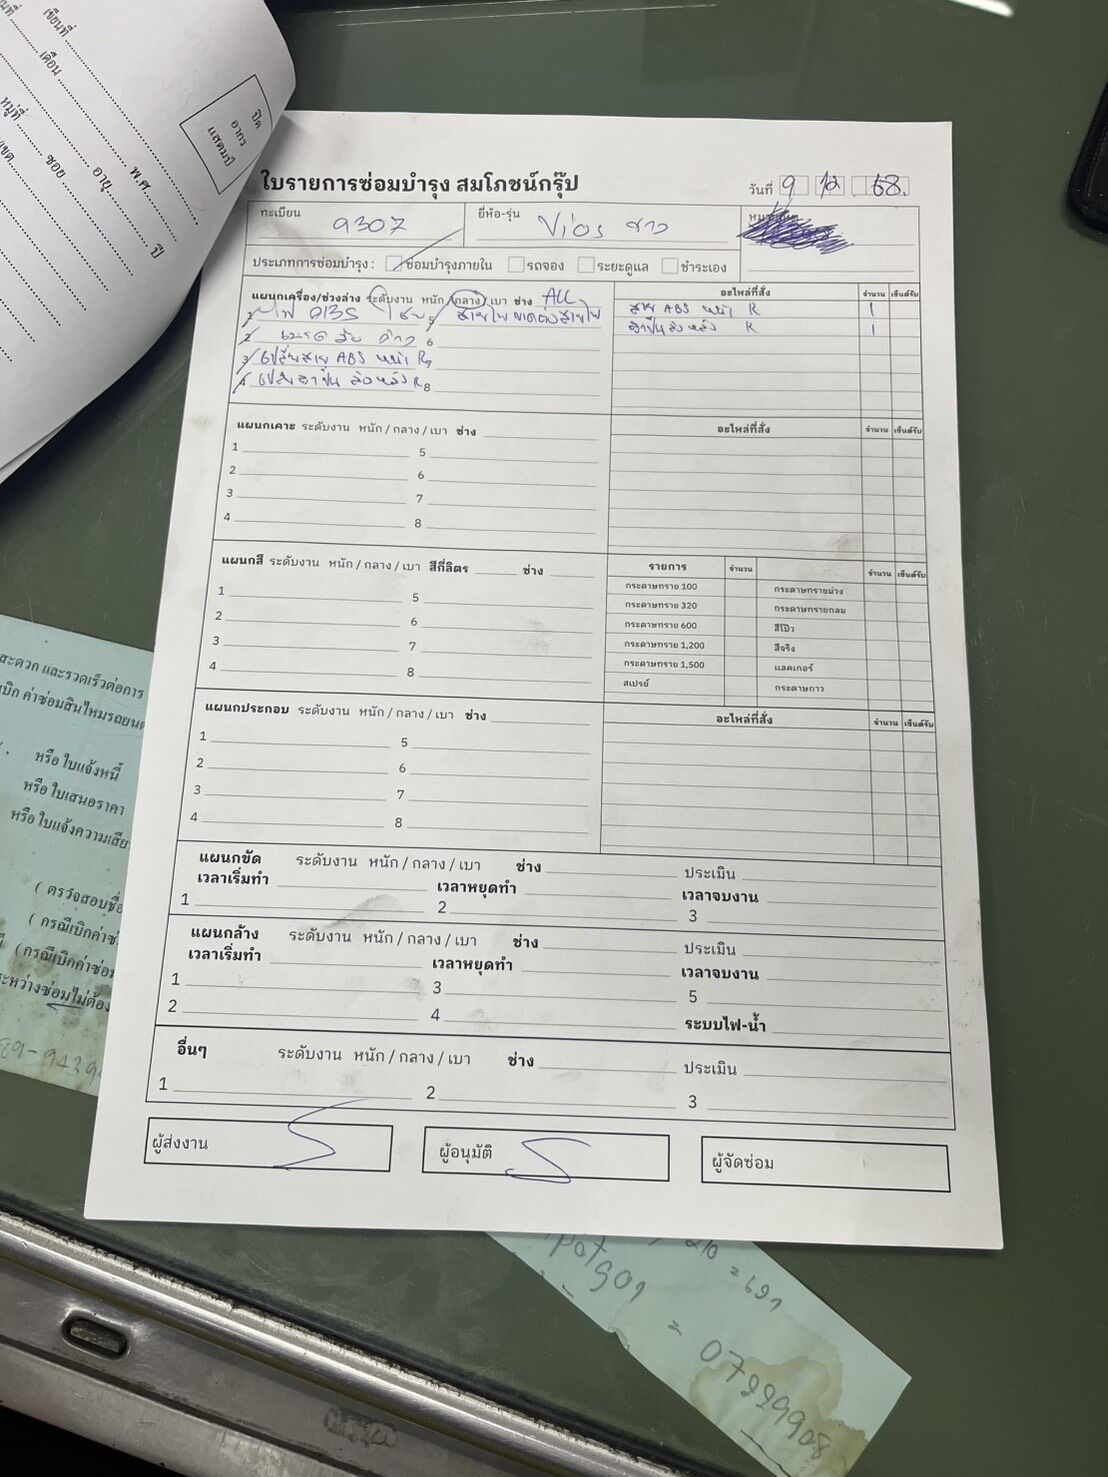 เขียนที่
เดือน
พ.ศ.
หมู่ที่
ซอย
อายุ
ปี
ปิด
อากร
แสตมป์
ใบรายการซ่อมบำรุง สมโภชน์กรุ๊ป
วันที่ 9 12 68.
ทะเบียน 9307 ยี่ห้อ-รุ่น Vios ขาว
ประเภทการซ่อมบำรุง : ซ่อมบำรุงภายใน รถจอง ระยะดูแล ชำระเอง
แผนกเครื่อง/ช่วงล่าง ระดับงาน หนัก / กลาง / เบา ช่าง ALL
อะไหล่ที่สั่ง จำนวน เซ็นต์รับ
1 ไฟ 5 สายไฟ ขาดต่อสายไฟ
2 6
3 เปลี่ยนสาย ABS หน้า R 7
4 หลัง R 8
สาย ABS หน้า R 1
หลัง R 1
แผนกเคาะ ระดับงาน หนัก / กลาง / เบา ช่าง
อะไหล่ที่สั่ง จำนวน เซ็นต์รับ
1 5
2 6
3 7
4 8
แผนกสี ระดับงาน หนัก / กลาง / เบา สีกี่ลิตร ช่าง
1 5
2 6
3 7
4 8
รายการ จำนวน จำนวน เซ็นต์รับ
กระดาษทราย 100 กระดาษทรายม่วง
กระดาษทราย 320 กระดาษทรายกลม
กระดาษทราย 600 สีโป๊ว
กระดาษทราย 1,200 สีจริง
กระดาษทราย 1,500 แลคเกอร์
สเปรย์ กระดาษกาว
แผนกประกอบ ระดับงาน หนัก / กลาง / เบา ช่าง
อะไหล่ที่สั่ง จำนวน เซ็นต์รับ
1 5
2 6
3 7
4 8
แผนกขัด ระดับงาน หนัก / กลาง / เบา ช่าง ประเมิน
เวลาเริ่มทำ เวลาหยุดทำ เวลาจบงาน
1 2 3
แผนกล้าง ระดับงาน หนัก / กลาง / เบา ช่าง ประเมิน
เวลาเริ่มทำ เวลาหยุดทำ เวลาจบงาน
1 3 5
2 4 ระบบไฟ-น้ำ
อื่นๆ ระดับงาน หนัก / กลาง / เบา ช่าง ประเมิน
1 2 3
ผู้ส่งงาน
ผู้อนุมัติ
ผู้จัดซ่อม
สะดวก และรวดเร็วต่อการ
เบิก ค่าซ่อมสินไหมรถยนต์
หรือ ใบแจ้งหนี้
หรือ ใบเสนอราคา
หรือ ใบแจ้งความเสีย
( ตรวจสอบชื่อ
( กรณีเบิกค่าซ่
(กรณีเบิกค่าซ่อม
ระหว่างซ่อมไม่ต้อง
89-9439
= 691